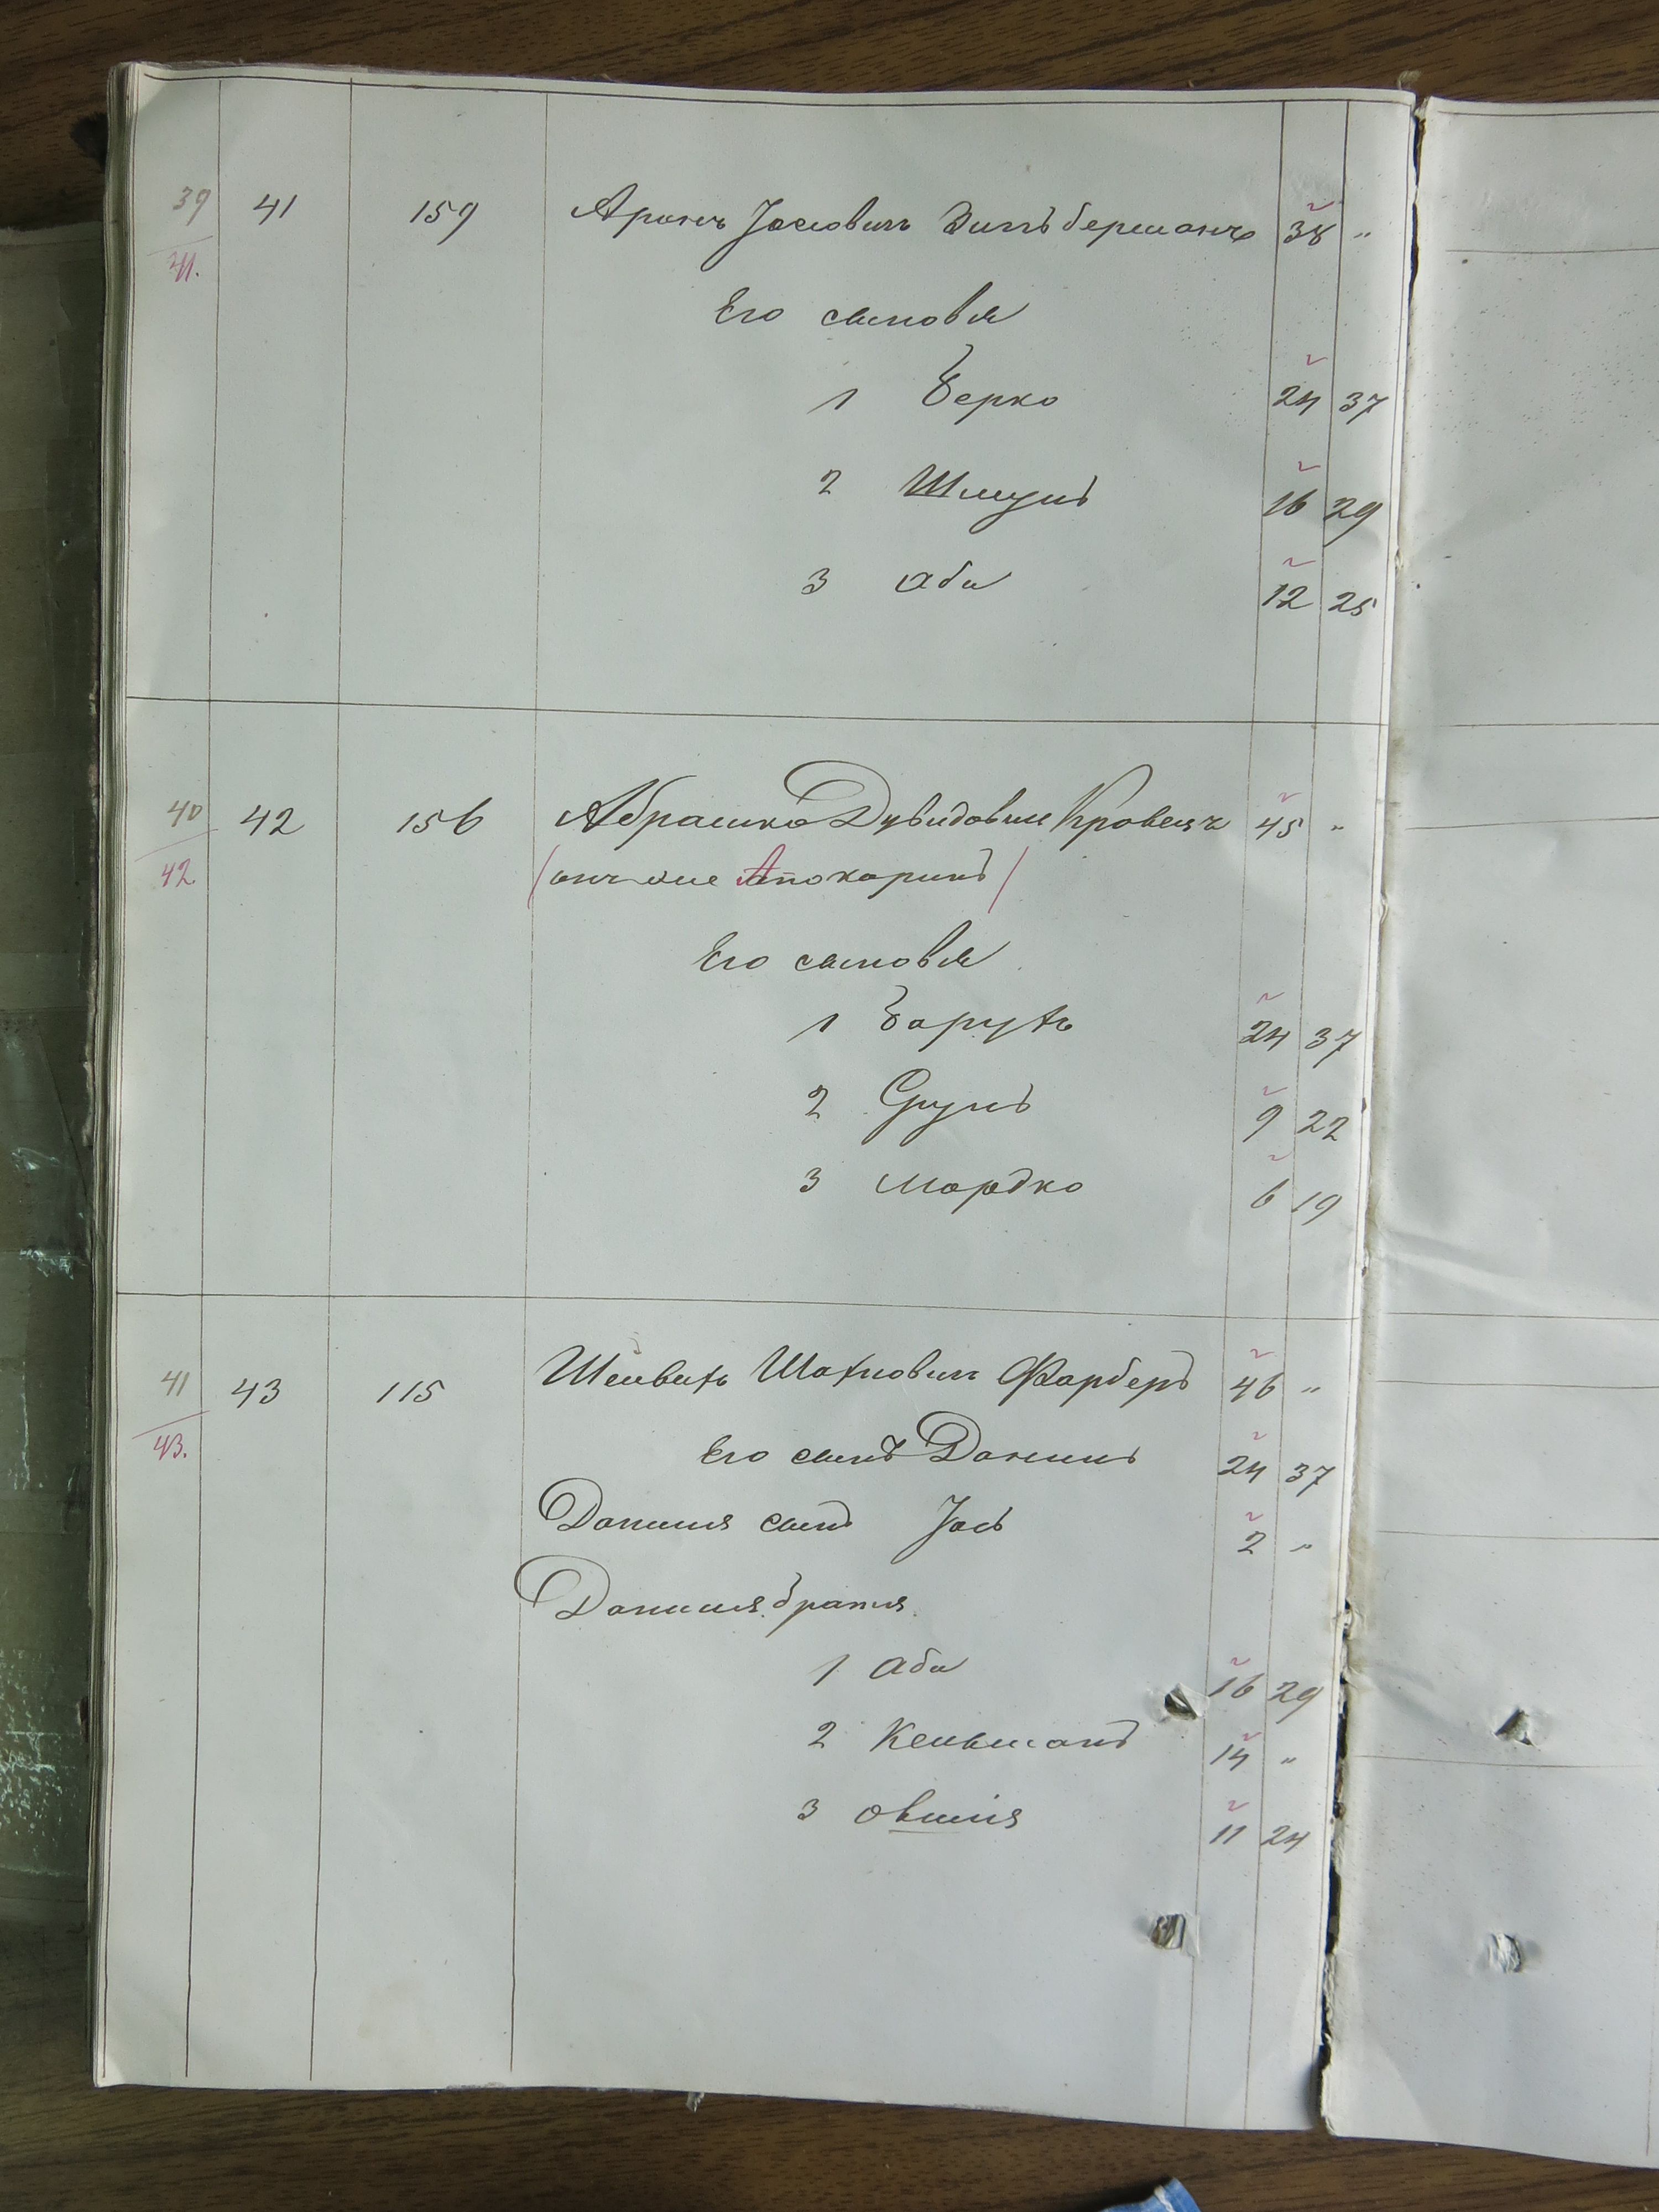 39 41 159 Аронъ Іосіовичъ Зильберманъ 38 "
41.
Его сыновья
1 Берко 24 37
2 Шмуль 16 29
3 Аба 12 25
40 42 156 Абрашко Дувидовичъ Кравецъ 45 "
42. (онъ же
Его сыновья
1 Барухъ 24 37
2 Сруль 9 22
3 Мордко 6 19
41 43 115 Шахновичъ Фарберъ 46 "
43. Его сынъ Данило 24 37
Данила сынъ Іось 2 "
Данила братья
1 Аба 16 29
2 Кельманъ 14 "
3 Овшія 11 24